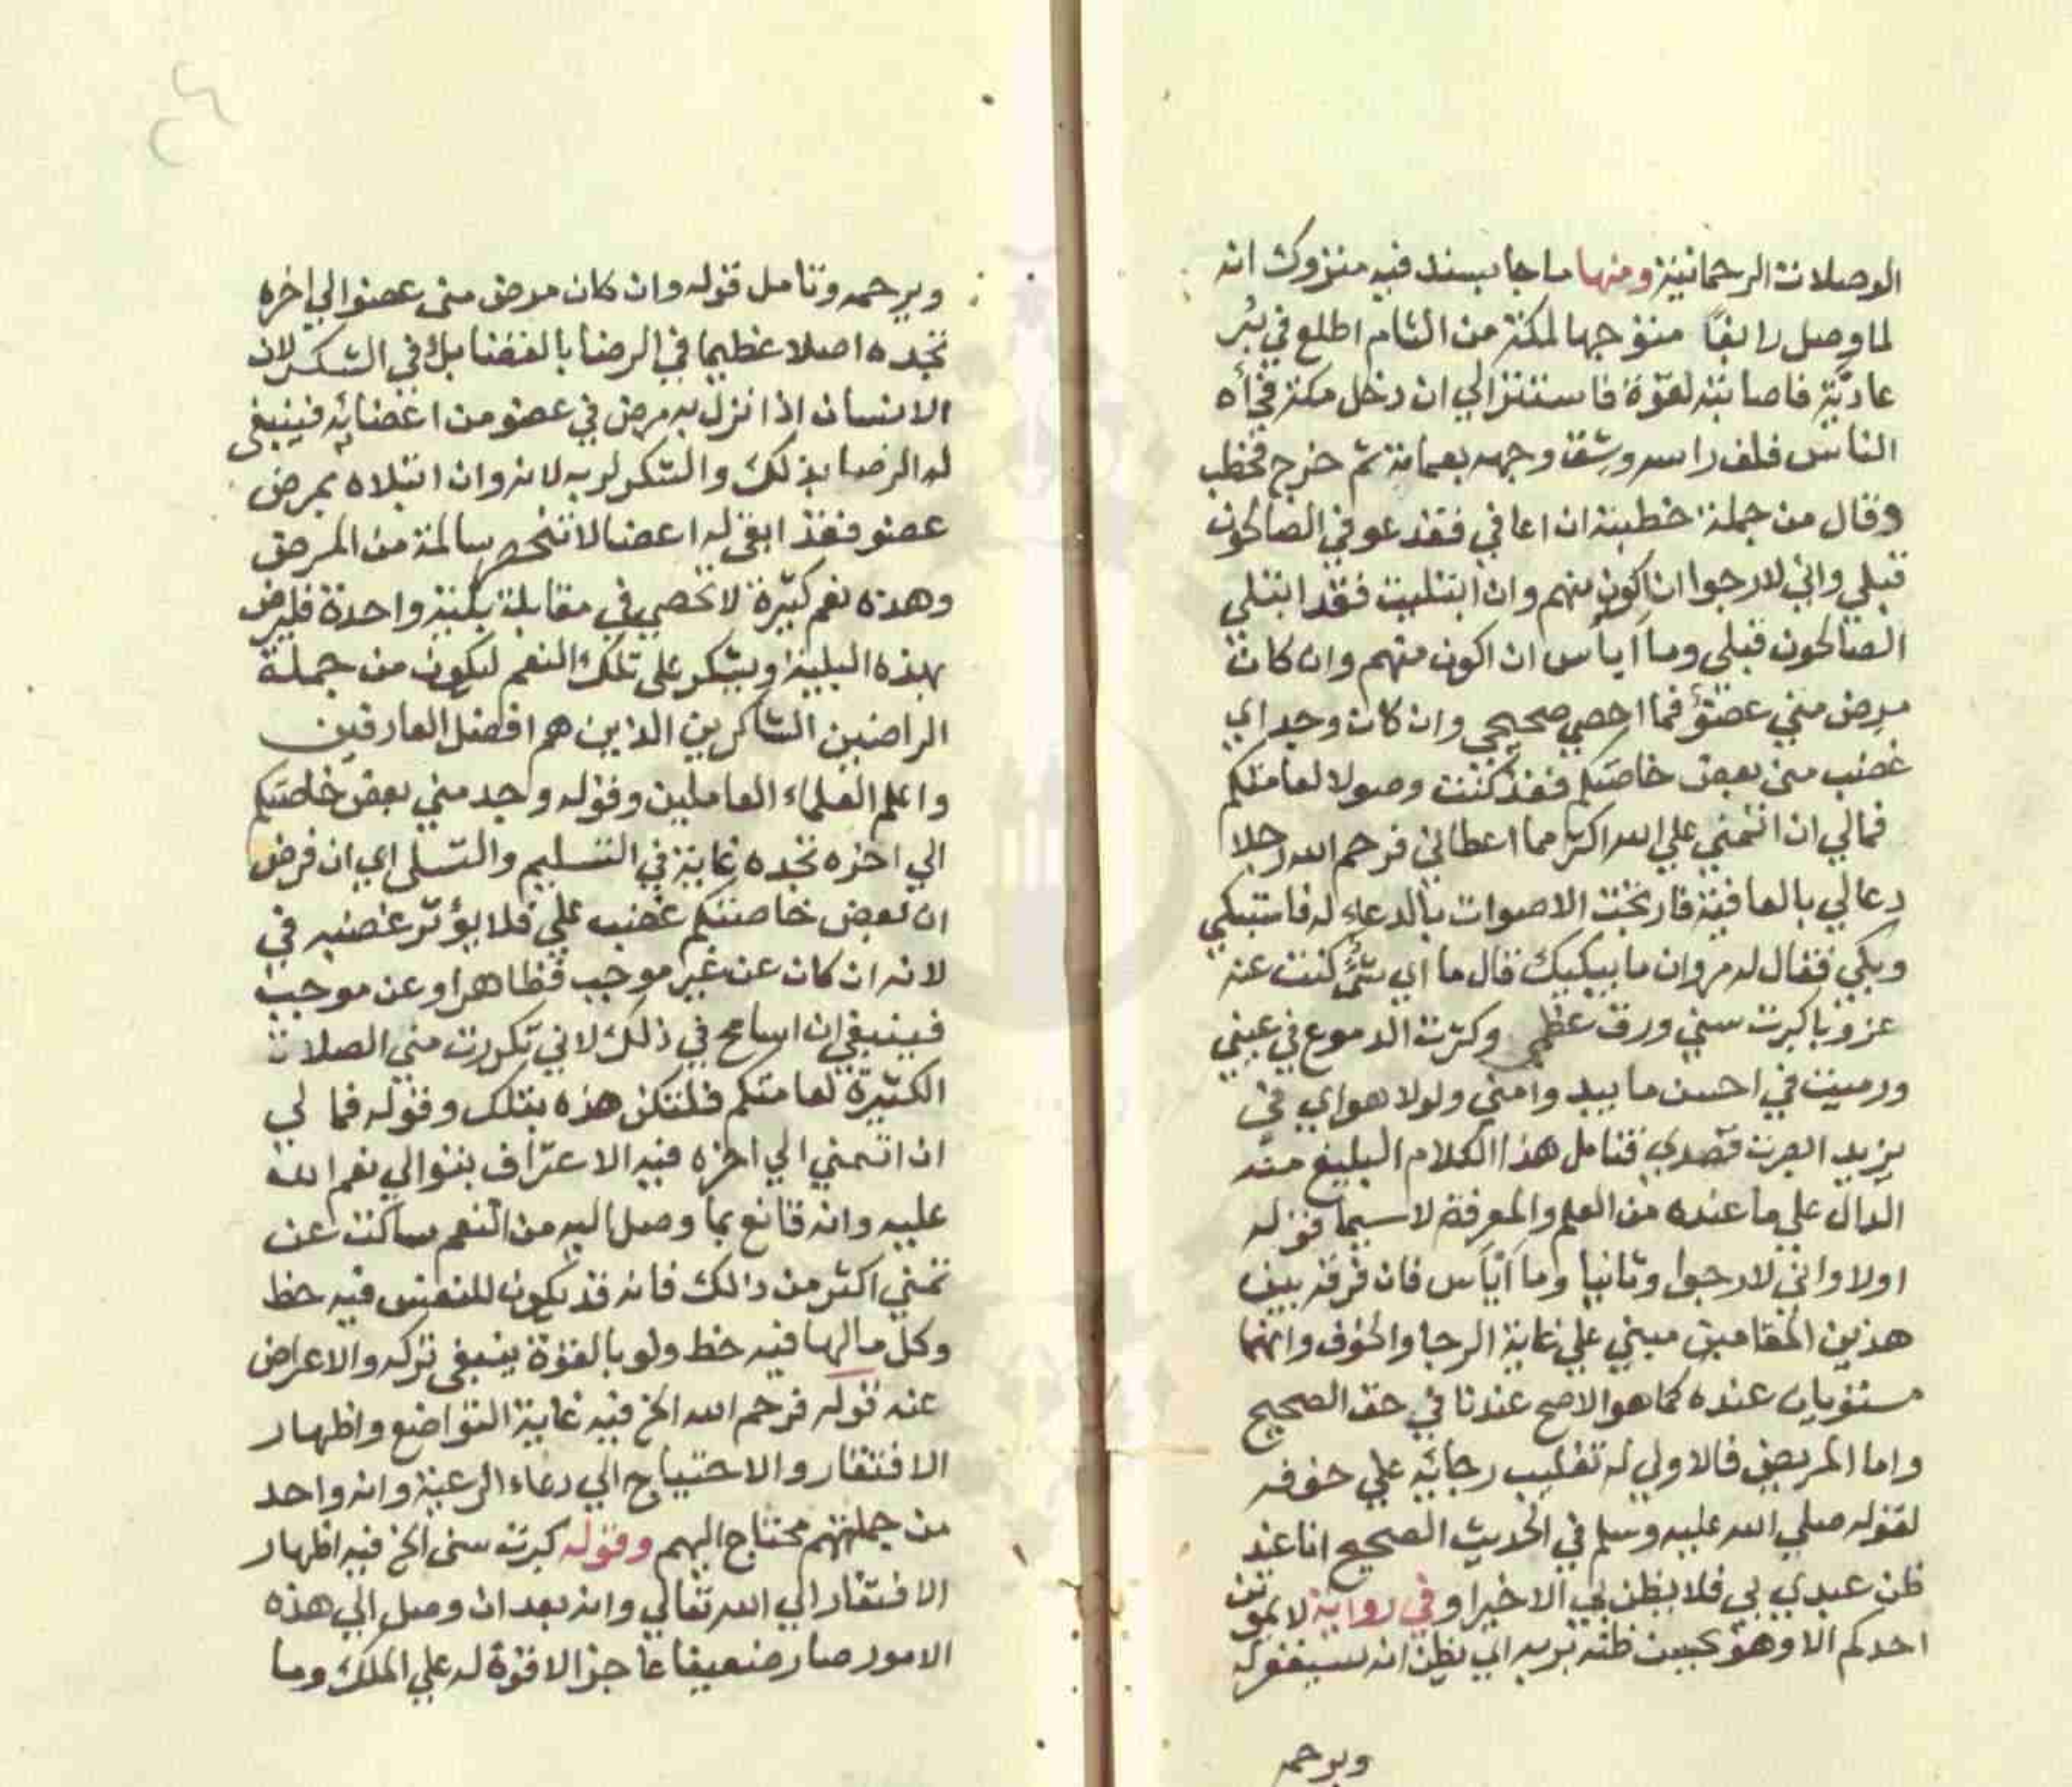 الوصلات الرحمانية ومنها ما جا بسند فيه متروك انه
لما وصل رابغا متوجها لمكة من الشام اطلع في بئر
عادية فاصابته لقوة فاستتر الي ان دخل مكة فجأه
الناس فلف راسه وشق وجهه بعمامة ثم خرج فخطب
وقال من جملة خطبته ان اعافي فقد عوفي الصالحون
قبلي واني لارجوا ان اكون منهم وان ابتليت فقد ابتلي
الصالحون قبلي وما اياس ان اكون منهم وان كان
مرض مني عضو فما احصي صحيحي وان كان وجد اي
غضب مني بعض خاصتكم فقد كنت وصولا لعامتكم
فمالي ان اتمني علي الله اكثر مما اعطاني فرحم الله رجلا
دعا لي بالعافية فارتجت الاصوات بالدعاء له فاستبكي
وبكي فقال له مروان ما يبكيك قال ما اي شئ كنت عنه
عزوبا كبرت سني ورق عظمي وكثرت الدموع في عيني
ورميت في احسن ما يبد وامني ولولا هواي في
يزيد ابصرت قصدي فتامل هذا الكلام البليغ منه
الدال علي ما عنده من العلم والمعرفة لا سيما قوله
اولا واني لارجوا وثانيا وما اياس فان فرقه بين
هذين المقامين مبني علي غاية الرجا والخوف وانهما
مستويان عنده كما هو الاصح عندنا في حق الصحيح
واما المريض فالاولي له تغليب رجائه علي خوفه
لقوله صلي الله عليه وسلم في الحديث الصحيح انا عند
ظن عبدي بي فلا يظن بي الا خيرا وفي رواية لا يموتن
احدكم الا وهو يحسن ظنه بربه اي يظن انه سيغفر له
ويرحمه
ويرحمه وتامل قوله وان كان مرض مني عضوا الي اخره
تجده اصلا عظيما في الرضا بالقضا بل في الشكر لان
الانسان اذا نزل به مرض في عضو من اعضائه فينبغي
له الرضا بذلك والشكر لربه لانه وان ابتلاه بمرض
عضو فقد ابقي له اعضا لا تنحصر سالمة من المرض
وهذه نعم كثيرة لا تحصي في مقابلة بلية واحدة فليرض
بهذه البلية ويشكر علي تلك النعم ليكون من جملة
الراضين الشاكرين الذين هم افضل العارفين
واعلم العلماء العاملين وقوله وجد مني بعض خاصتكم
الي اخره تجده غاية في التسليم والتسلي اي ان فرض
ان بعض خاصتكم غضب علي فلا يؤثر غضبه في
لانه ان كان عن غير موجب فظاهر او عن موجب
فينبغي ان اسامح في ذلك لاني تكررت مني الصلات
الكثيرة لعامتكم فلتكن هذه بتلك وقوله فما لي
ان اتمني الي اخره فيه الاعتراف بتوالي نعم الله
عليه وانه قانع بما وصل اليه من النعم ساكت عن
تمني اكثر من ذالك فانه قد يكون للنفس فيه حظ
وكل ما لها فيه حظ ولو بالقوة ينبغي تركه والاعراض
عنه قوله فرحم الله الخ فيه غاية التواضع واظهار
الافتقار والاحتياج الي دعاء الرعية وانه واحد
من جملتهم محتاج اليهم وقوله كبرت سني الخ فيه اظهار
الافتقار الي الله تعالي وانه بعد ان وصل الي هذه
الامور صار ضعيفا عاجزا لا قوة له علي الملك وما